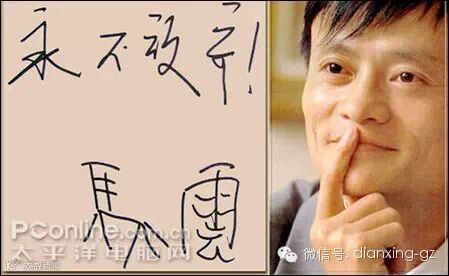 永不放弃!
馬雲
PConline
太平洋电脑网
微信号: dianxing-gz